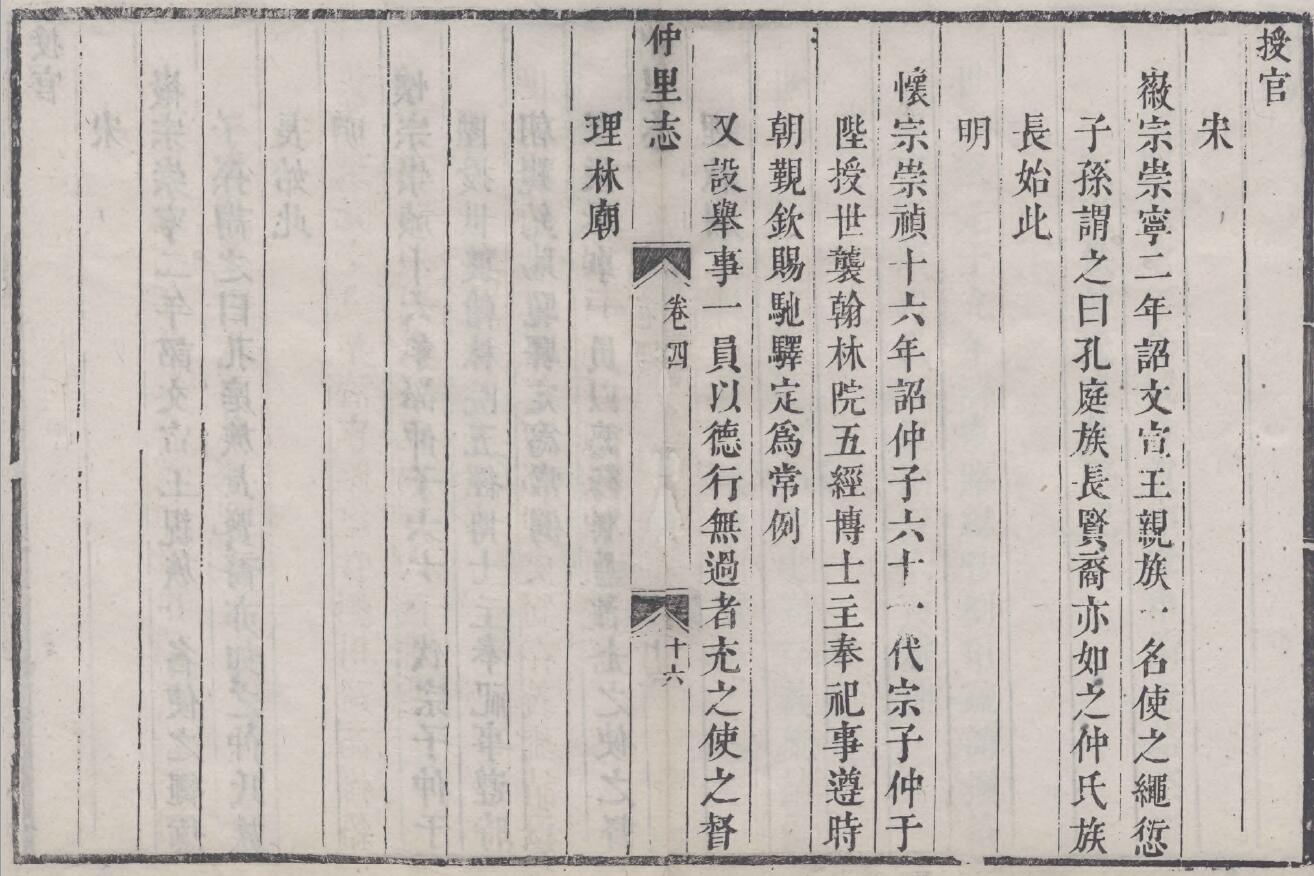 授官
宋
徽宗崇寧二年詔文宣王親族一名使之繩愆
子孫謂之曰孔庭族長賢裔亦如之仲氏族
長始此
明
懷宗崇禎十六年詔仲子六十一代宗子仲于
陛授世襲翰林院五經博士主奉祀事遵時
朝覲欽賜馳驛定爲常例
又設舉事一員以德行無過者充之使之督
仲里志
卷四
十六
理林廟